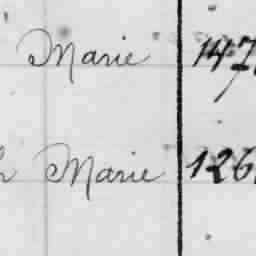 Marie 147
h Marie 126